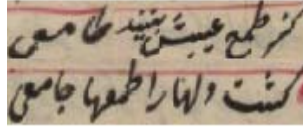 کز طمع عیبش نبیند طامعی
گشت دلها را طمعها جامعی